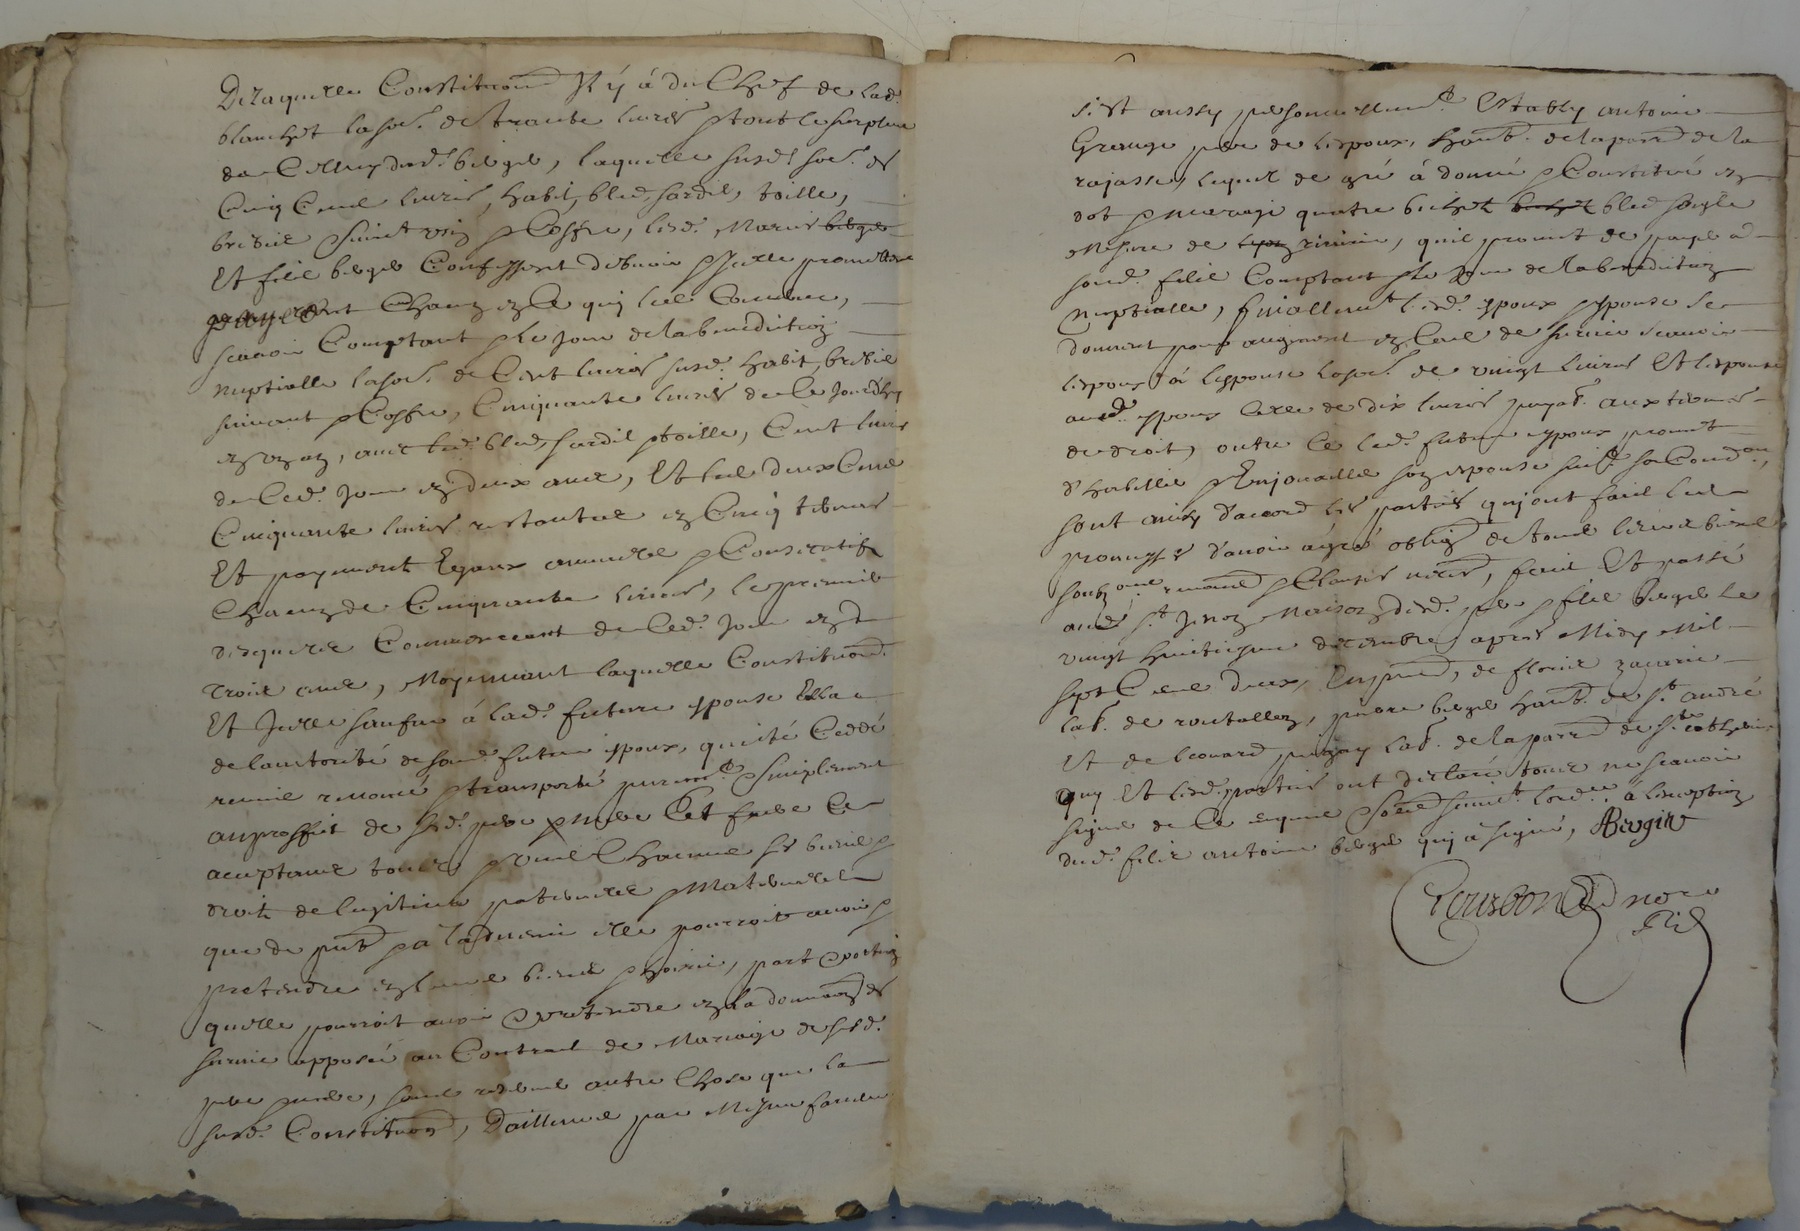 De laquelle Constitution Il y à du Chef de lad.
blanchet la so. de trante livres & tout le surplus
de Celluy dud. berger, laquelle susd. so. de
Cinq Cens livres, habit, bled, fardil, toille,
brebis suivant & Coffre, lesd. Maries
Et fils berger Confessent debvoir & Icelle promettent
payer Chacun en Ce quy les Concerne,
scavoir Comptant & le Jour de la benediction
nuptialle la so. de Cent livres susd. habit, brebis
suivant & Coffre, Cinquante livres de Ce Jourdhuy
en un an, avec led. bled, fardil & toille, Cent livres
de Ced. Jour en deux ans, Et les deux Cens
Cinquante livres restantes en Cinq termes
Et payements Egaux annuels & Consecutifs
Chacun de Cinquante livres, le premier
desquels Commencant de Ced. Jour en
trois ans, Moyennant laquelle Constitution
Et Icelle sauf à lad. future espouse Elle
de lautorité de sond. futur espoux, quitté Ceddé
remis renoncé & transporté purem.t & simplement
au proffit de sesd. pere & mere Et frere Ce
acceptans tous & uns Chacuns ses biens &
droits de legitime paternelle & Maternelle
que de pnt & à ladvenir elle pourroit avoir &
pretendre en leurs biens & hoirie, part & portion
quelle pourroit avoir & pretendre en la donnaon de
survie apposée au Contract de Mariage de sesd.
pere & mere, sans reserve autre Chose que la
susd. Constitution, Dailleurs par Mesme facteur
s'est aussy personnellem.t Estably antoine
Grange pere de lespoux, habt. de la parr. de la
rajasse, lequel de gré à donné & Constitué en
dot & mariage quatre bichets bled seigle
Mesure de rivirie, quil promet de payer a
sond. fils Comptant & le Jour de la benediction
Nuptialle, finallem.t lesd. espoux & espouse se
donnent pour augment en Cas de survie scavoir
lespoux à lespouse la so. de vingt livres Et lespouse
aud. espoux Celle de dix livres payab. aux termes
de droit, outre Ce led. futur espoux promet
d'habiller & Enjoualler son espouse suiv.t sa Condon,
sont ainsy d'accord les parties qui ont faict les
promesses d'avoir agréé oblig. de tous leurs biens
soubzons renons & Clauses necres, faict Et passé
aud. St Jenoz Maison desd. pere & fils berger le
vingt huitiesme decembre apres Midy Mil
sept Cens deux, En pnce, de fleurie zacarie
lab. de rontallon, pierre berger habt. de St. andré
Et de leonard pugay lab. de la parr. de Ste. catherine
quy Et lesd. parties ont declaré tous ne scavoir
signer de Ce enquis & somé suiv.t lord.ce à lexception
dud. fils antoine berger quy à signé, ABergier